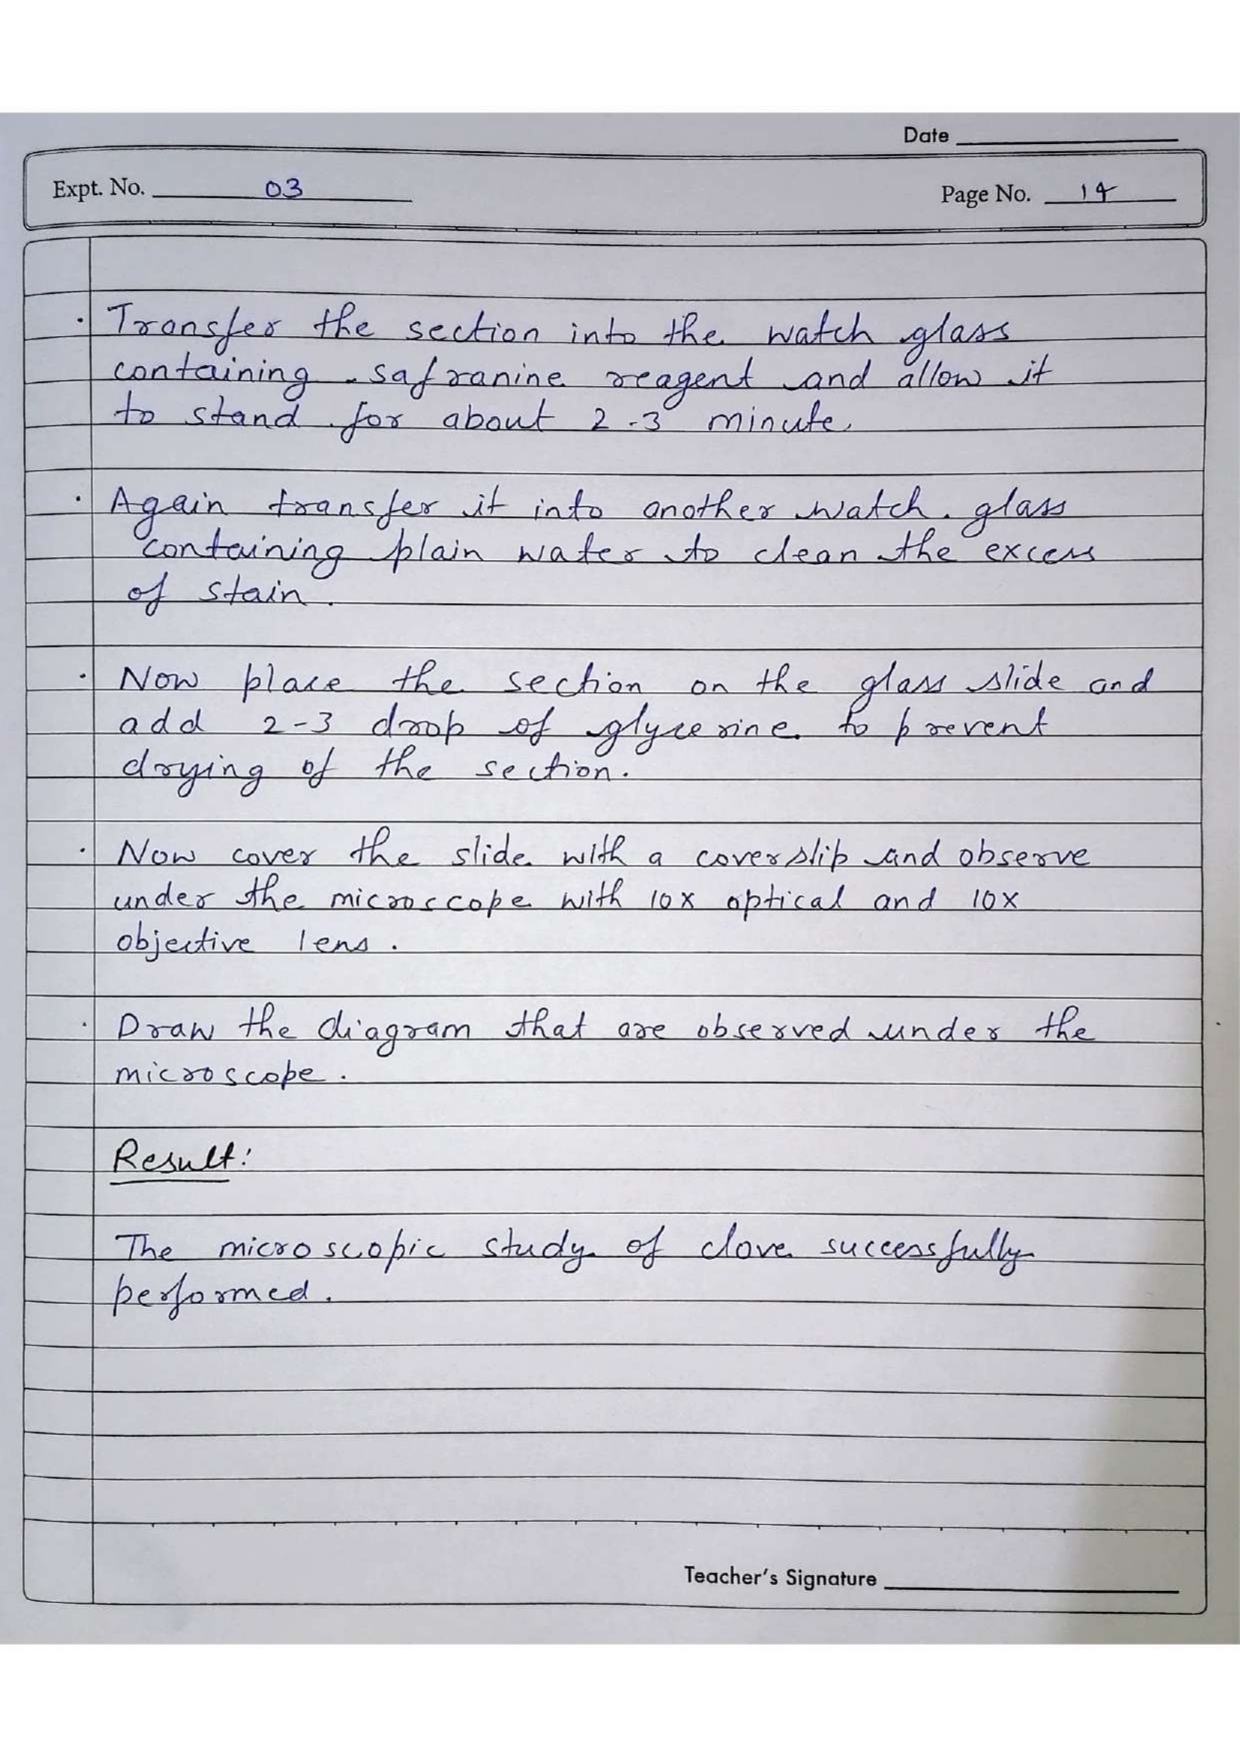 Date
Expt. No. 03
Page No. 14
. Transfer the section into the watch glass
containing safranine reagent and allow it
to stand for about 2-3 minute.
. Again transfer it into another watch glass
containing plain water to clean the excess
of stain.
. Now place the section on the glass slide and
add 2-3 drop of glycerine to prevent
drying of the section.
. Now cover the slide with a coverslip and observe
under the microscope with 10x optical and 10x
objective lens.
. Draw the diagram that are observed under the
microscope.
Result:
The microscopic study of clove successfully
performed.
Teacher's Signature